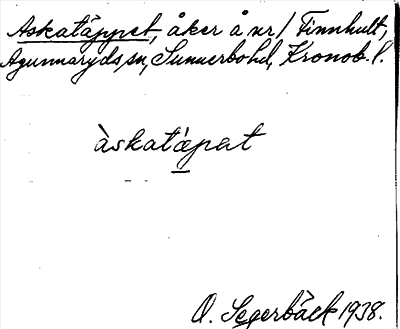 Askatäppet, åker å nr 1 Finnhult,
Agunnaryds sn, Sunnerbo hd, Kronob. l.
àskatápat
O. Segerbäck 1938.